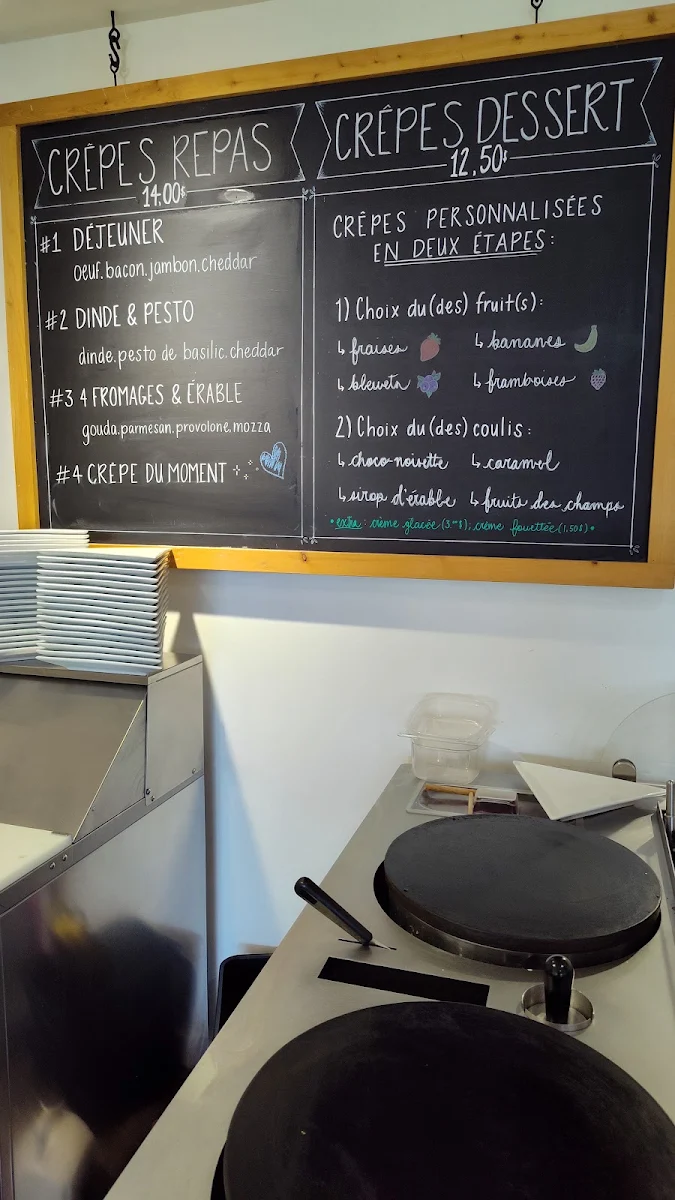 CRÊPES REPAS
14.00$
#1 DÉJEUNER
oeuf.bacon.jambon.cheddar
#2 DINDE & PESTO
dinde.pesto de basilic.cheddar
#3 4 FROMAGES & ÉRABLE
gouda.parmesan.provolone.mozza
#4 CRÊPE DU MOMENT
CRÊPES DESSERT
12.50$
CRÊPES PERSONNALISÉES
EN DEUX ÉTAPES:
1) Choix du(des) fruit(s):
↳ fraises ↳ bananes
↳ bleuets ↳ framboises
2) Choix du(des) coulis:
↳ choco-noisette ↳ caramel
↳ sirop d'érable ↳ fruits des champs
• extra: crème glacée (3.00$); crème fouettée (1.50$) •